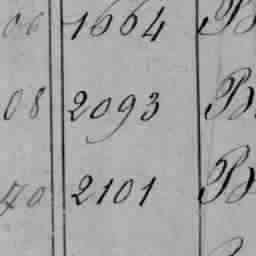 06 1664 B
08 2093 B
70 2101 B